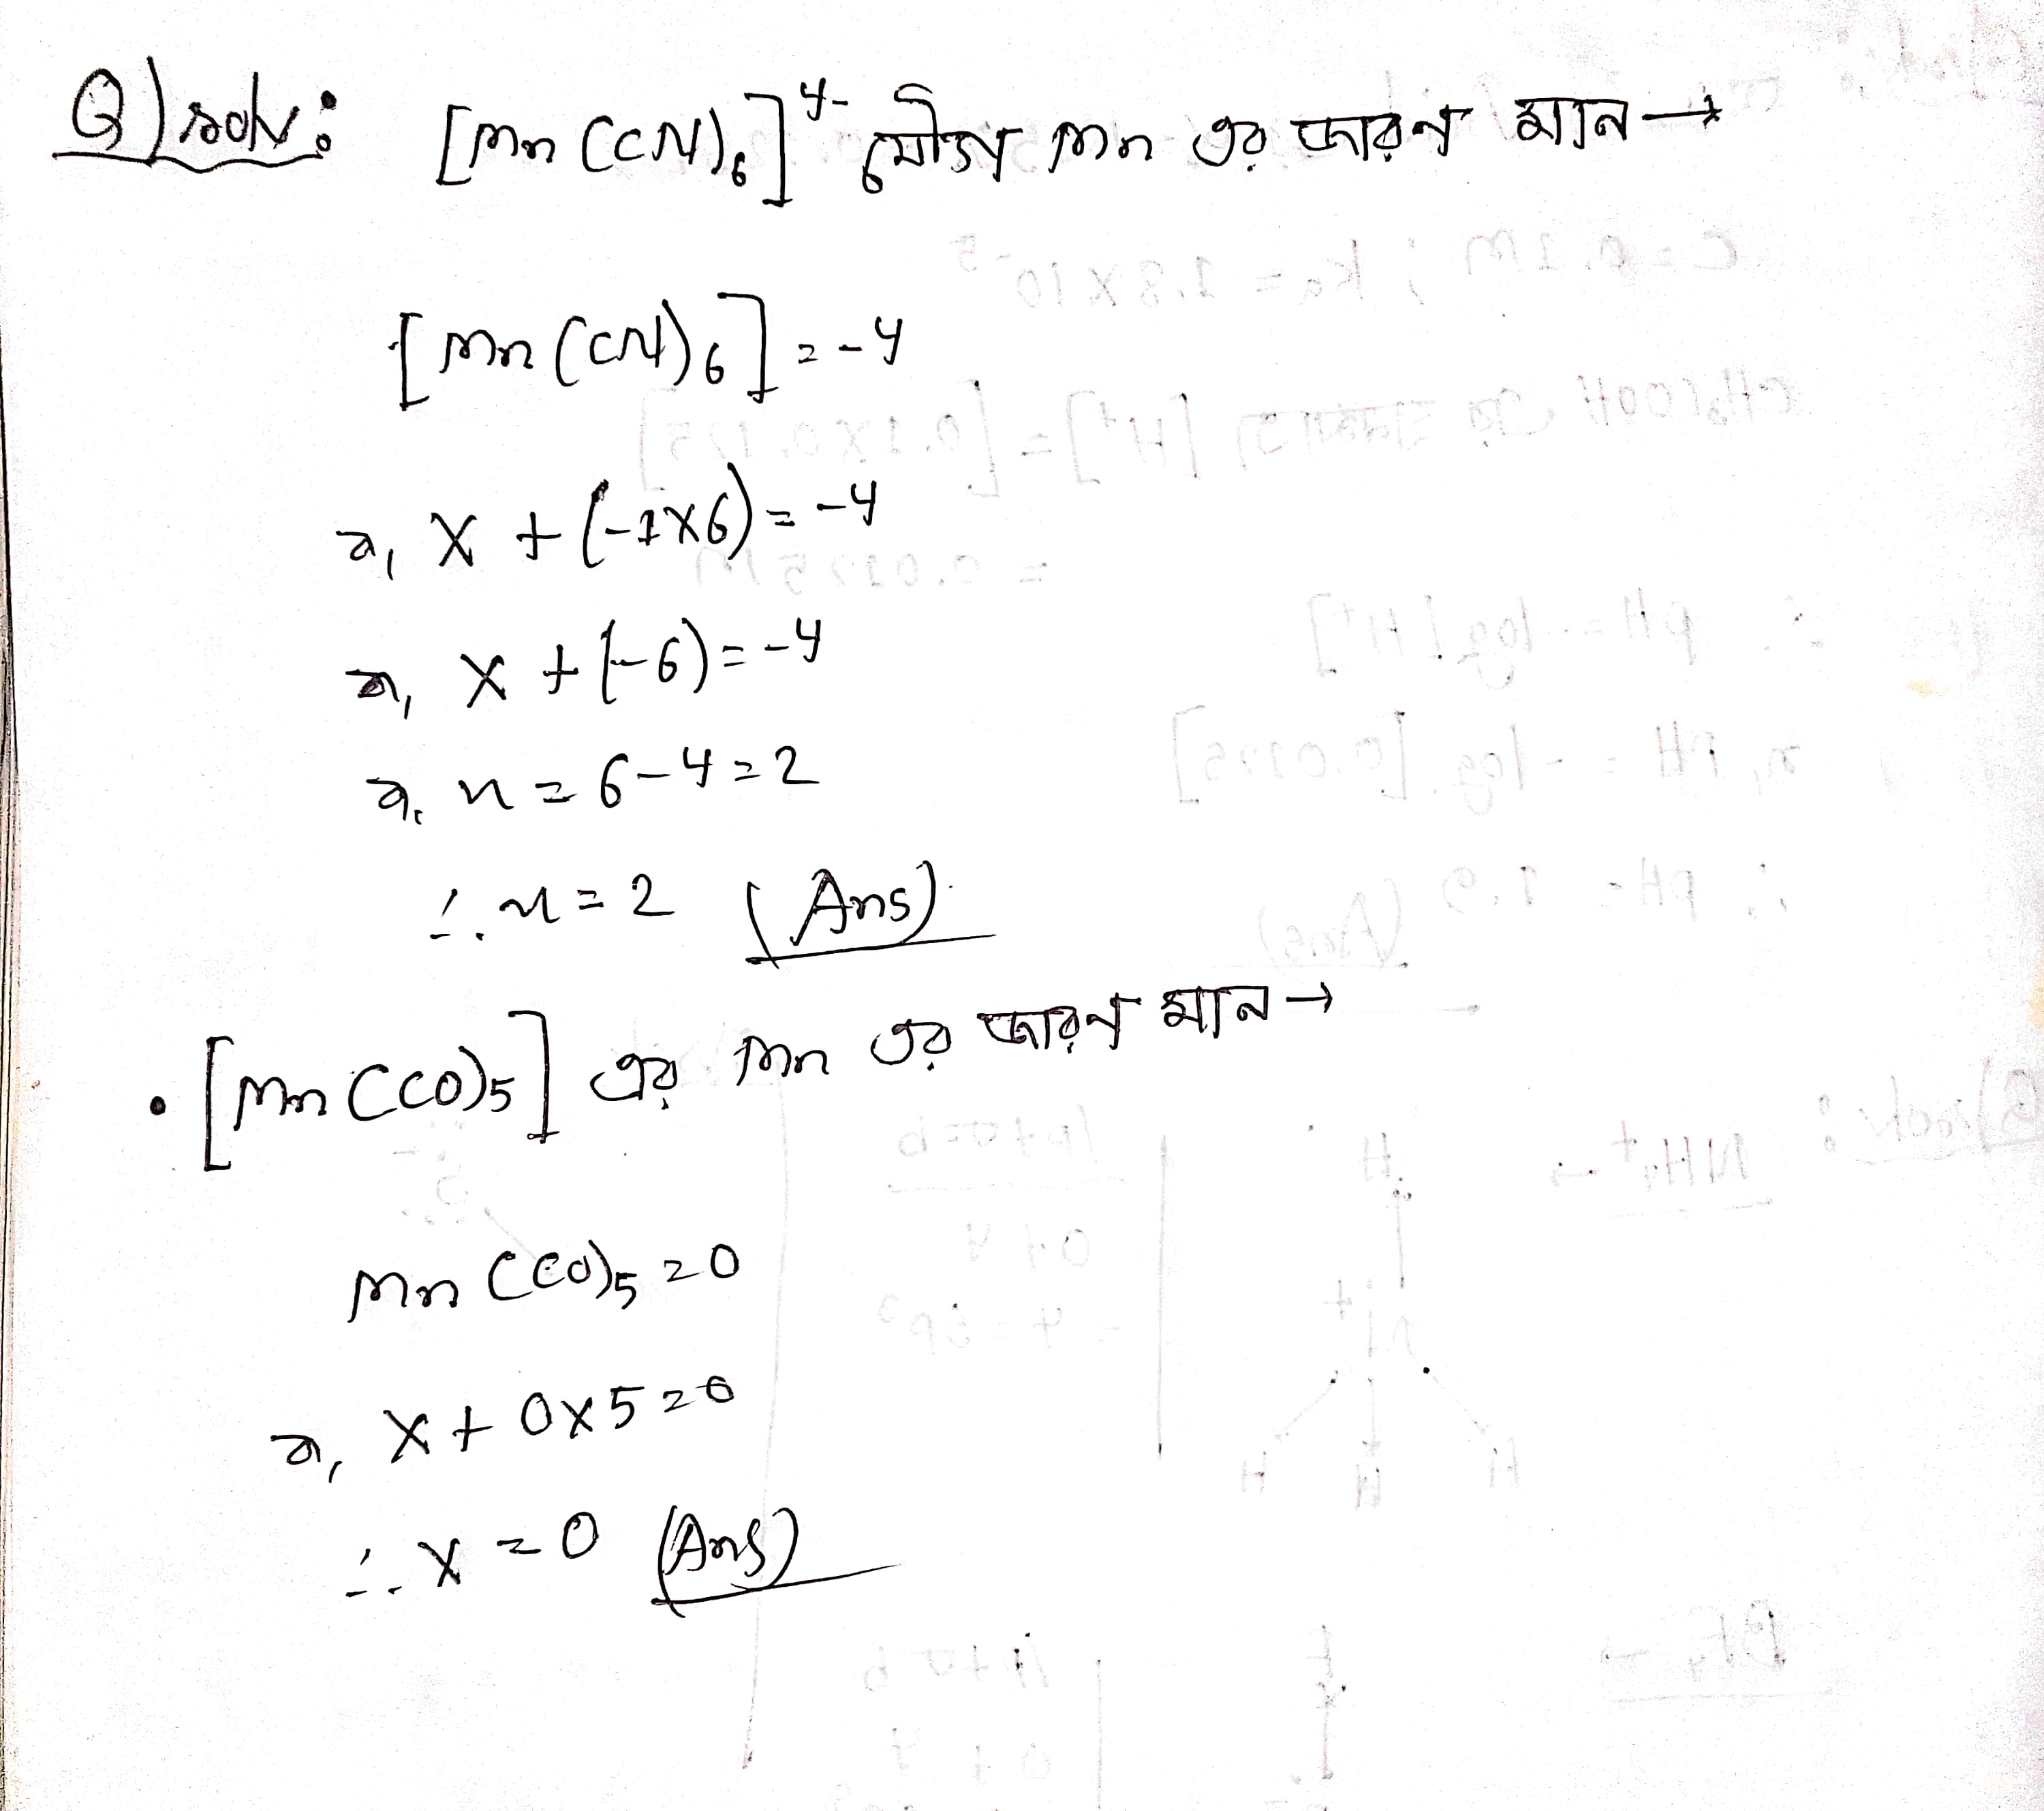 Q) solv: [Mn(CN)₆]⁴⁻ যৌগে Mn এর জারণ মান →
[Mn(CN)6] = -4
বা, x + (-1×6) = -4
বা, x + (-6) = -4
বা, x = 6-4 = 2
∴ x = 2 (Ans)
• [Mn(CO)5] এর Mn এর জারণ মান →
Mn(CO)5 = 0
বা, x + 0×5 = 0
∴ x = 0 (Ans)